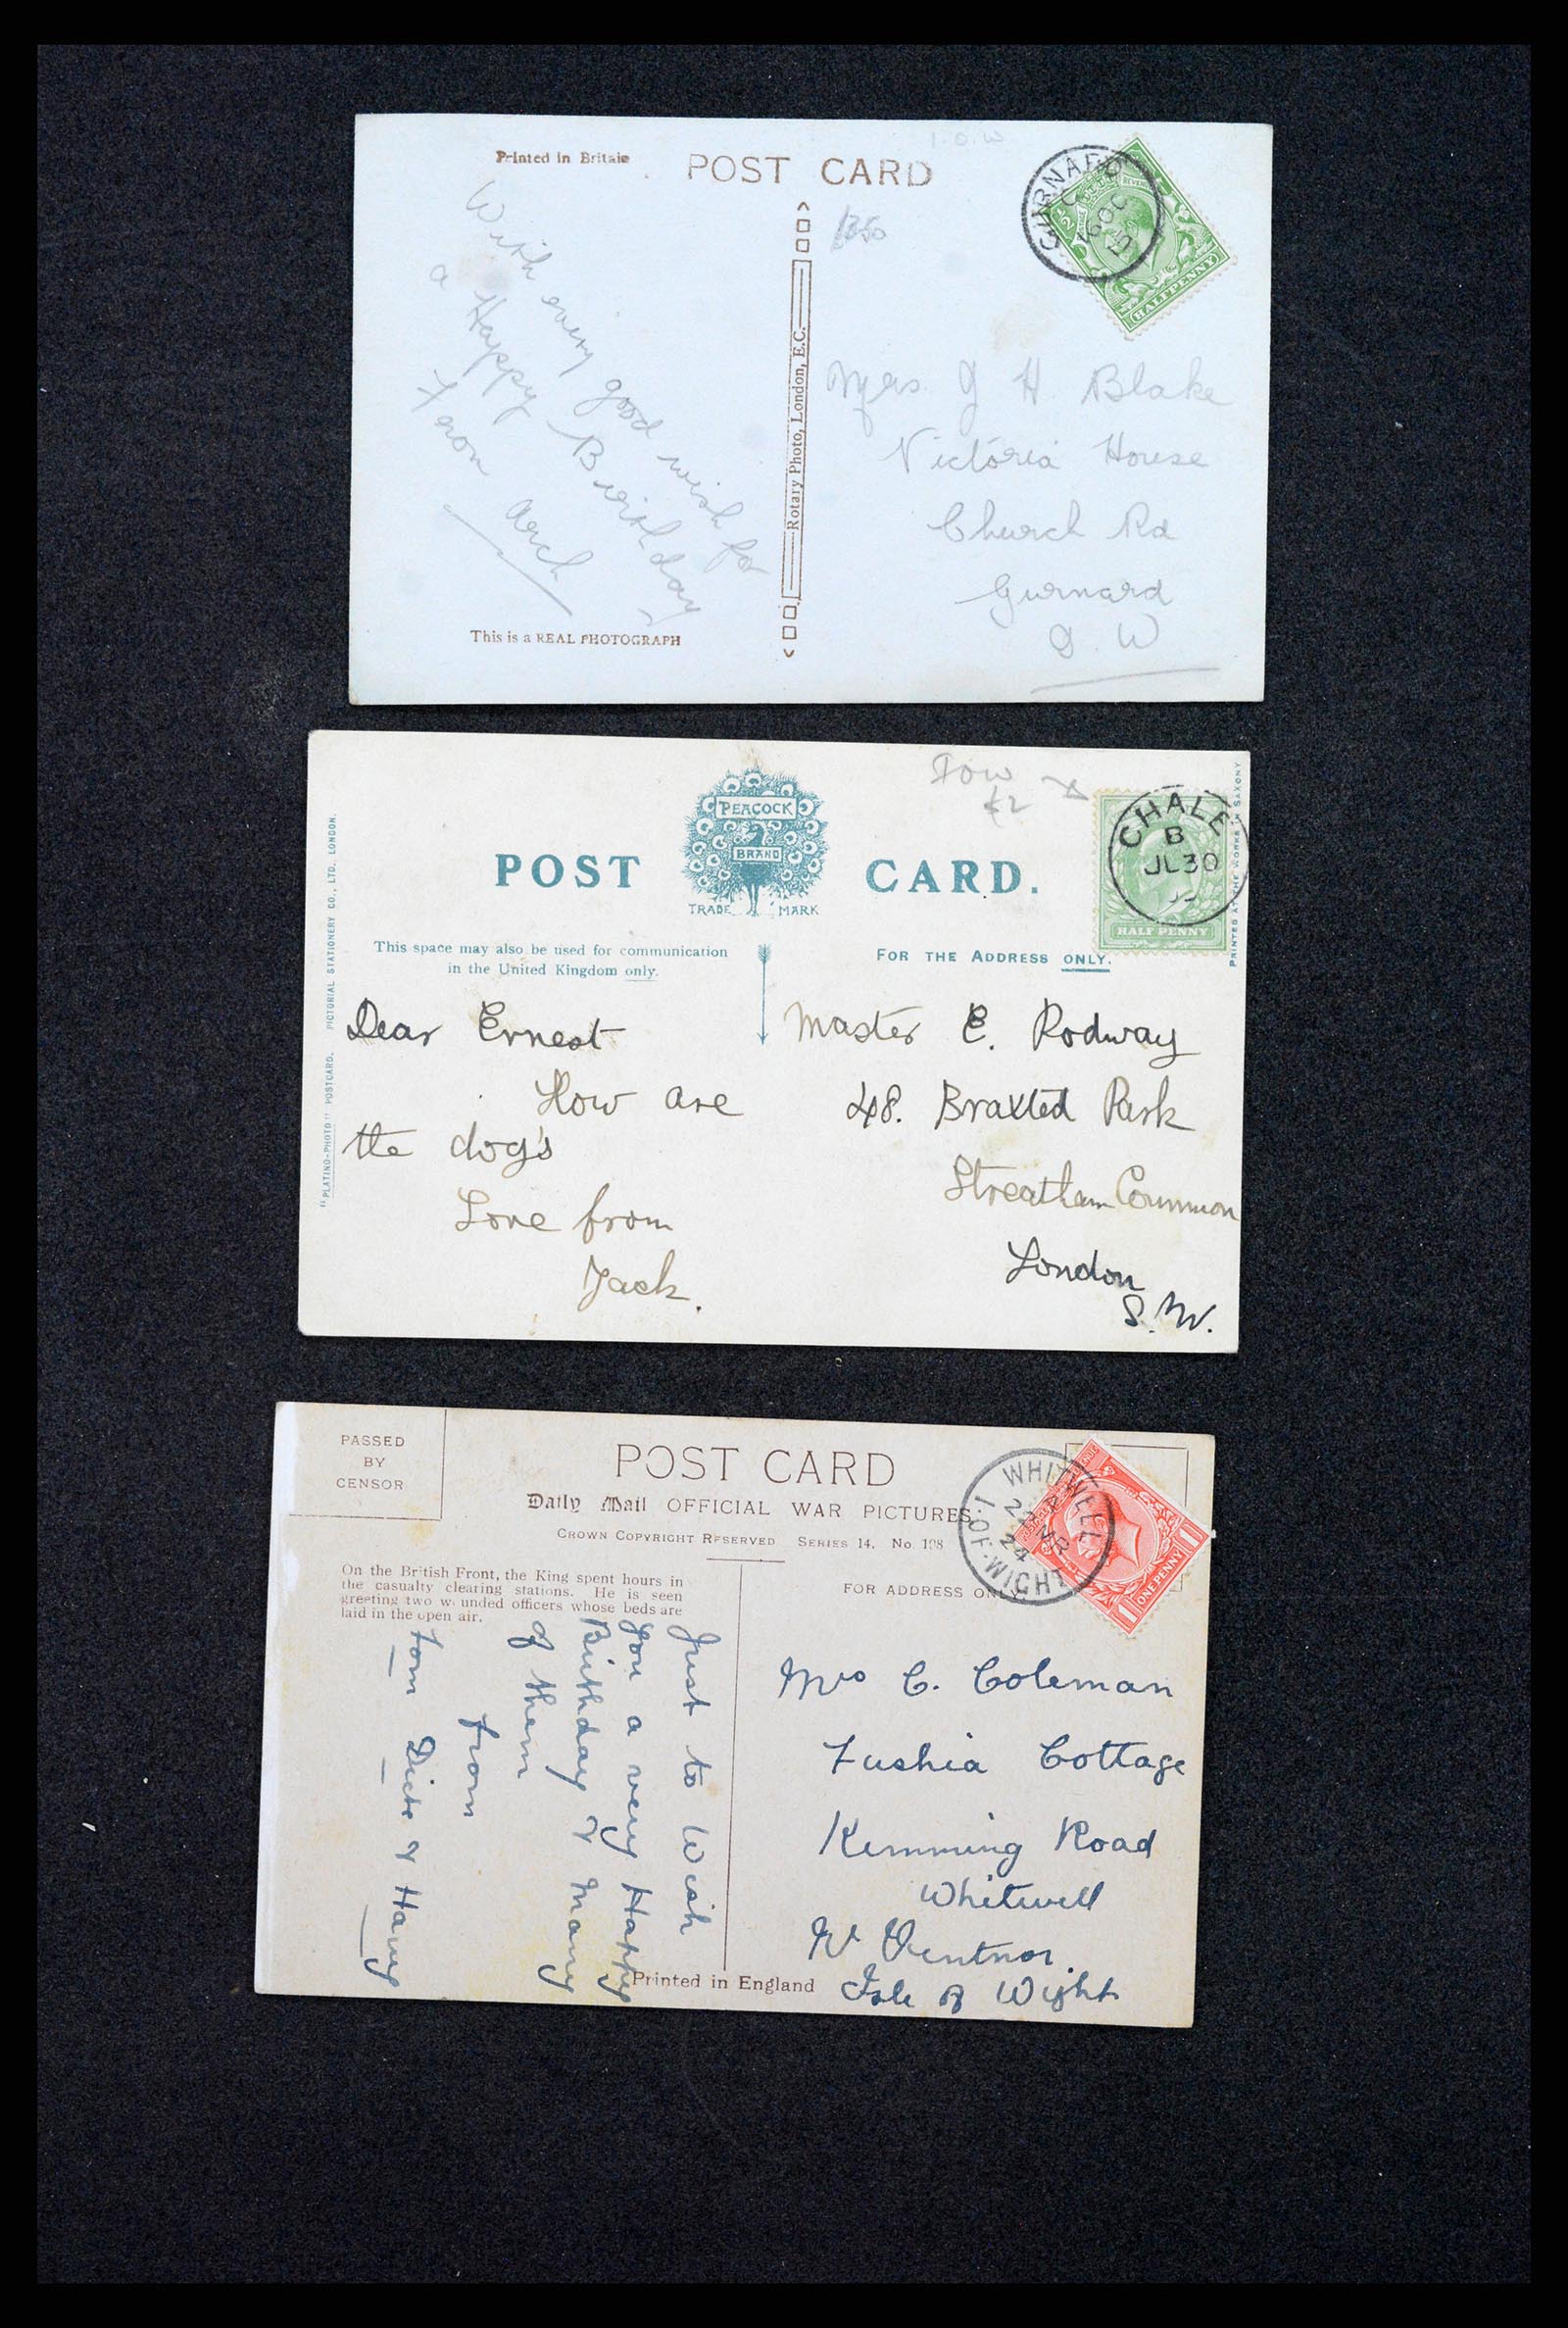 Printed in Britain
POST CARD
I.O.W
GURNARD
C
16 OC
½
HALFPENNY
With every good wish for
a Happy Birthday
from Arch
Rotary Photo, London, E.C.
Mrs. G H Blake
Victoria House
Church Rd
Gurnard
I. W
This is a REAL PHOTOGRAPH
IOW
£2
PEACOCK
BRAND
TRADE MARK
POST CARD.
CHALE
B
JL 30
HALF PENNY
PRINTED AT THE WORKS IN SAXONY
"PLATINO-PHOTO" POSTCARD. PICTORIAL STATIONERY CO., LTD. LONDON.
This space may also be used for communication
in the United Kingdom only.
FOR THE ADDRESS ONLY.
Dear Ernest
How are
the dog's
Love from
Jack.
Master E. Rodway
48. Braxted Park
Streatham Common
London
S.W.
PASSED
BY
CENSOR
POST CARD
Daily Mail OFFICIAL WAR PICTURES
CROWN COPYRIGHT RESERVED SERIES 14. No. 108
WHITWELL
I. OF. WIGHT
24
1 ONE PENNY 1
On the British Front, the King spent hours in
the casualty clearing stations. He is seen
greeting two wounded officers whose beds are
laid in the open air.
FOR ADDRESS ONLY.
Just to Wish
you a very Happy
Birthday & Many
of them
from
Tom Dick & Harry
Mrs C. Coleman
Fushia Cottage
Kemming Road
Whitwell
Nr Ventnor.
Isle of Wight
Printed in England